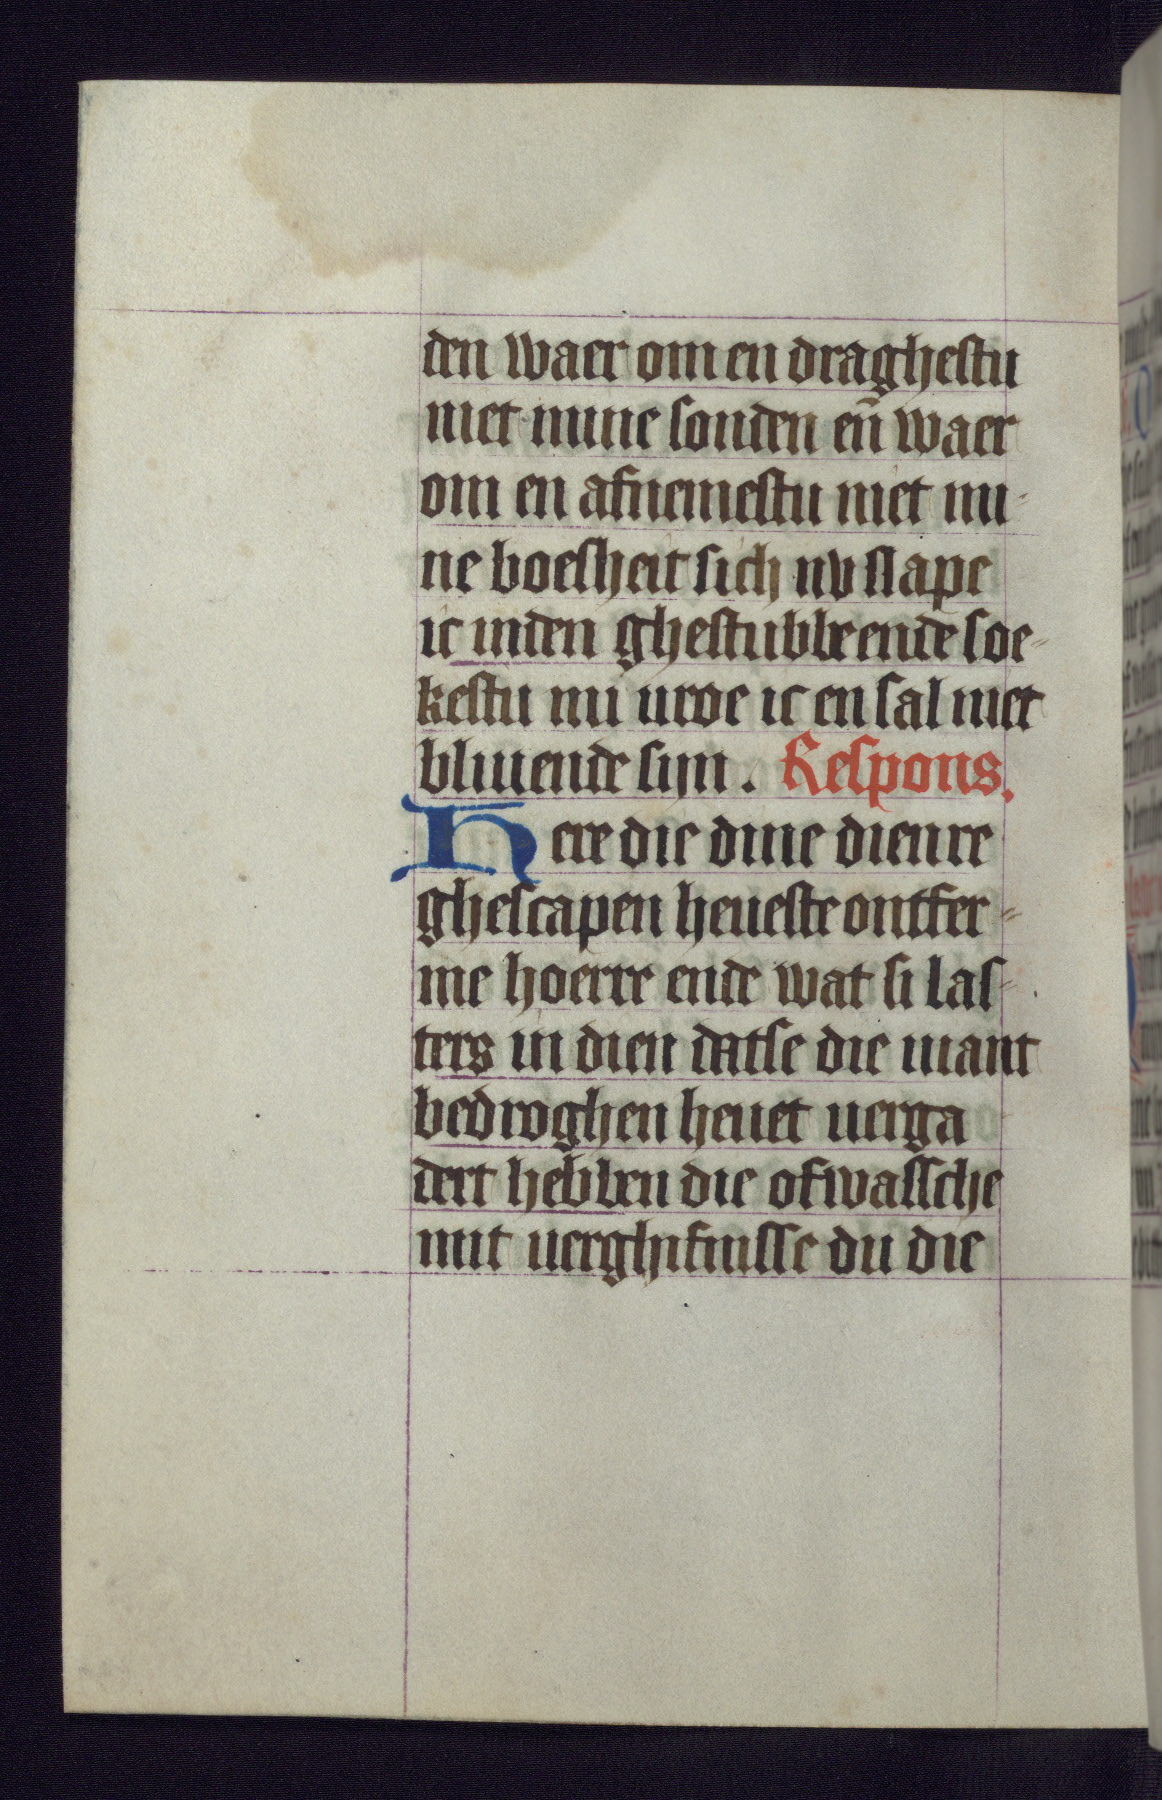 den waer om en draghestu
niet mine sonden eñ waer
om en afnemestu niet mi-
ne boesheit sich nv slape
ic inden ghestubbe ende soe-
kestu mi vroe ic en sal niet
bliuende sijn. Respons.
Here die dine dienre
ghescapen heueste ontfer-
me hoerre ende wat si las-
ters in dien datse die viant
bedroghen heuet uerga
dert hebben die ofwassche
mit uerghifnisse du die